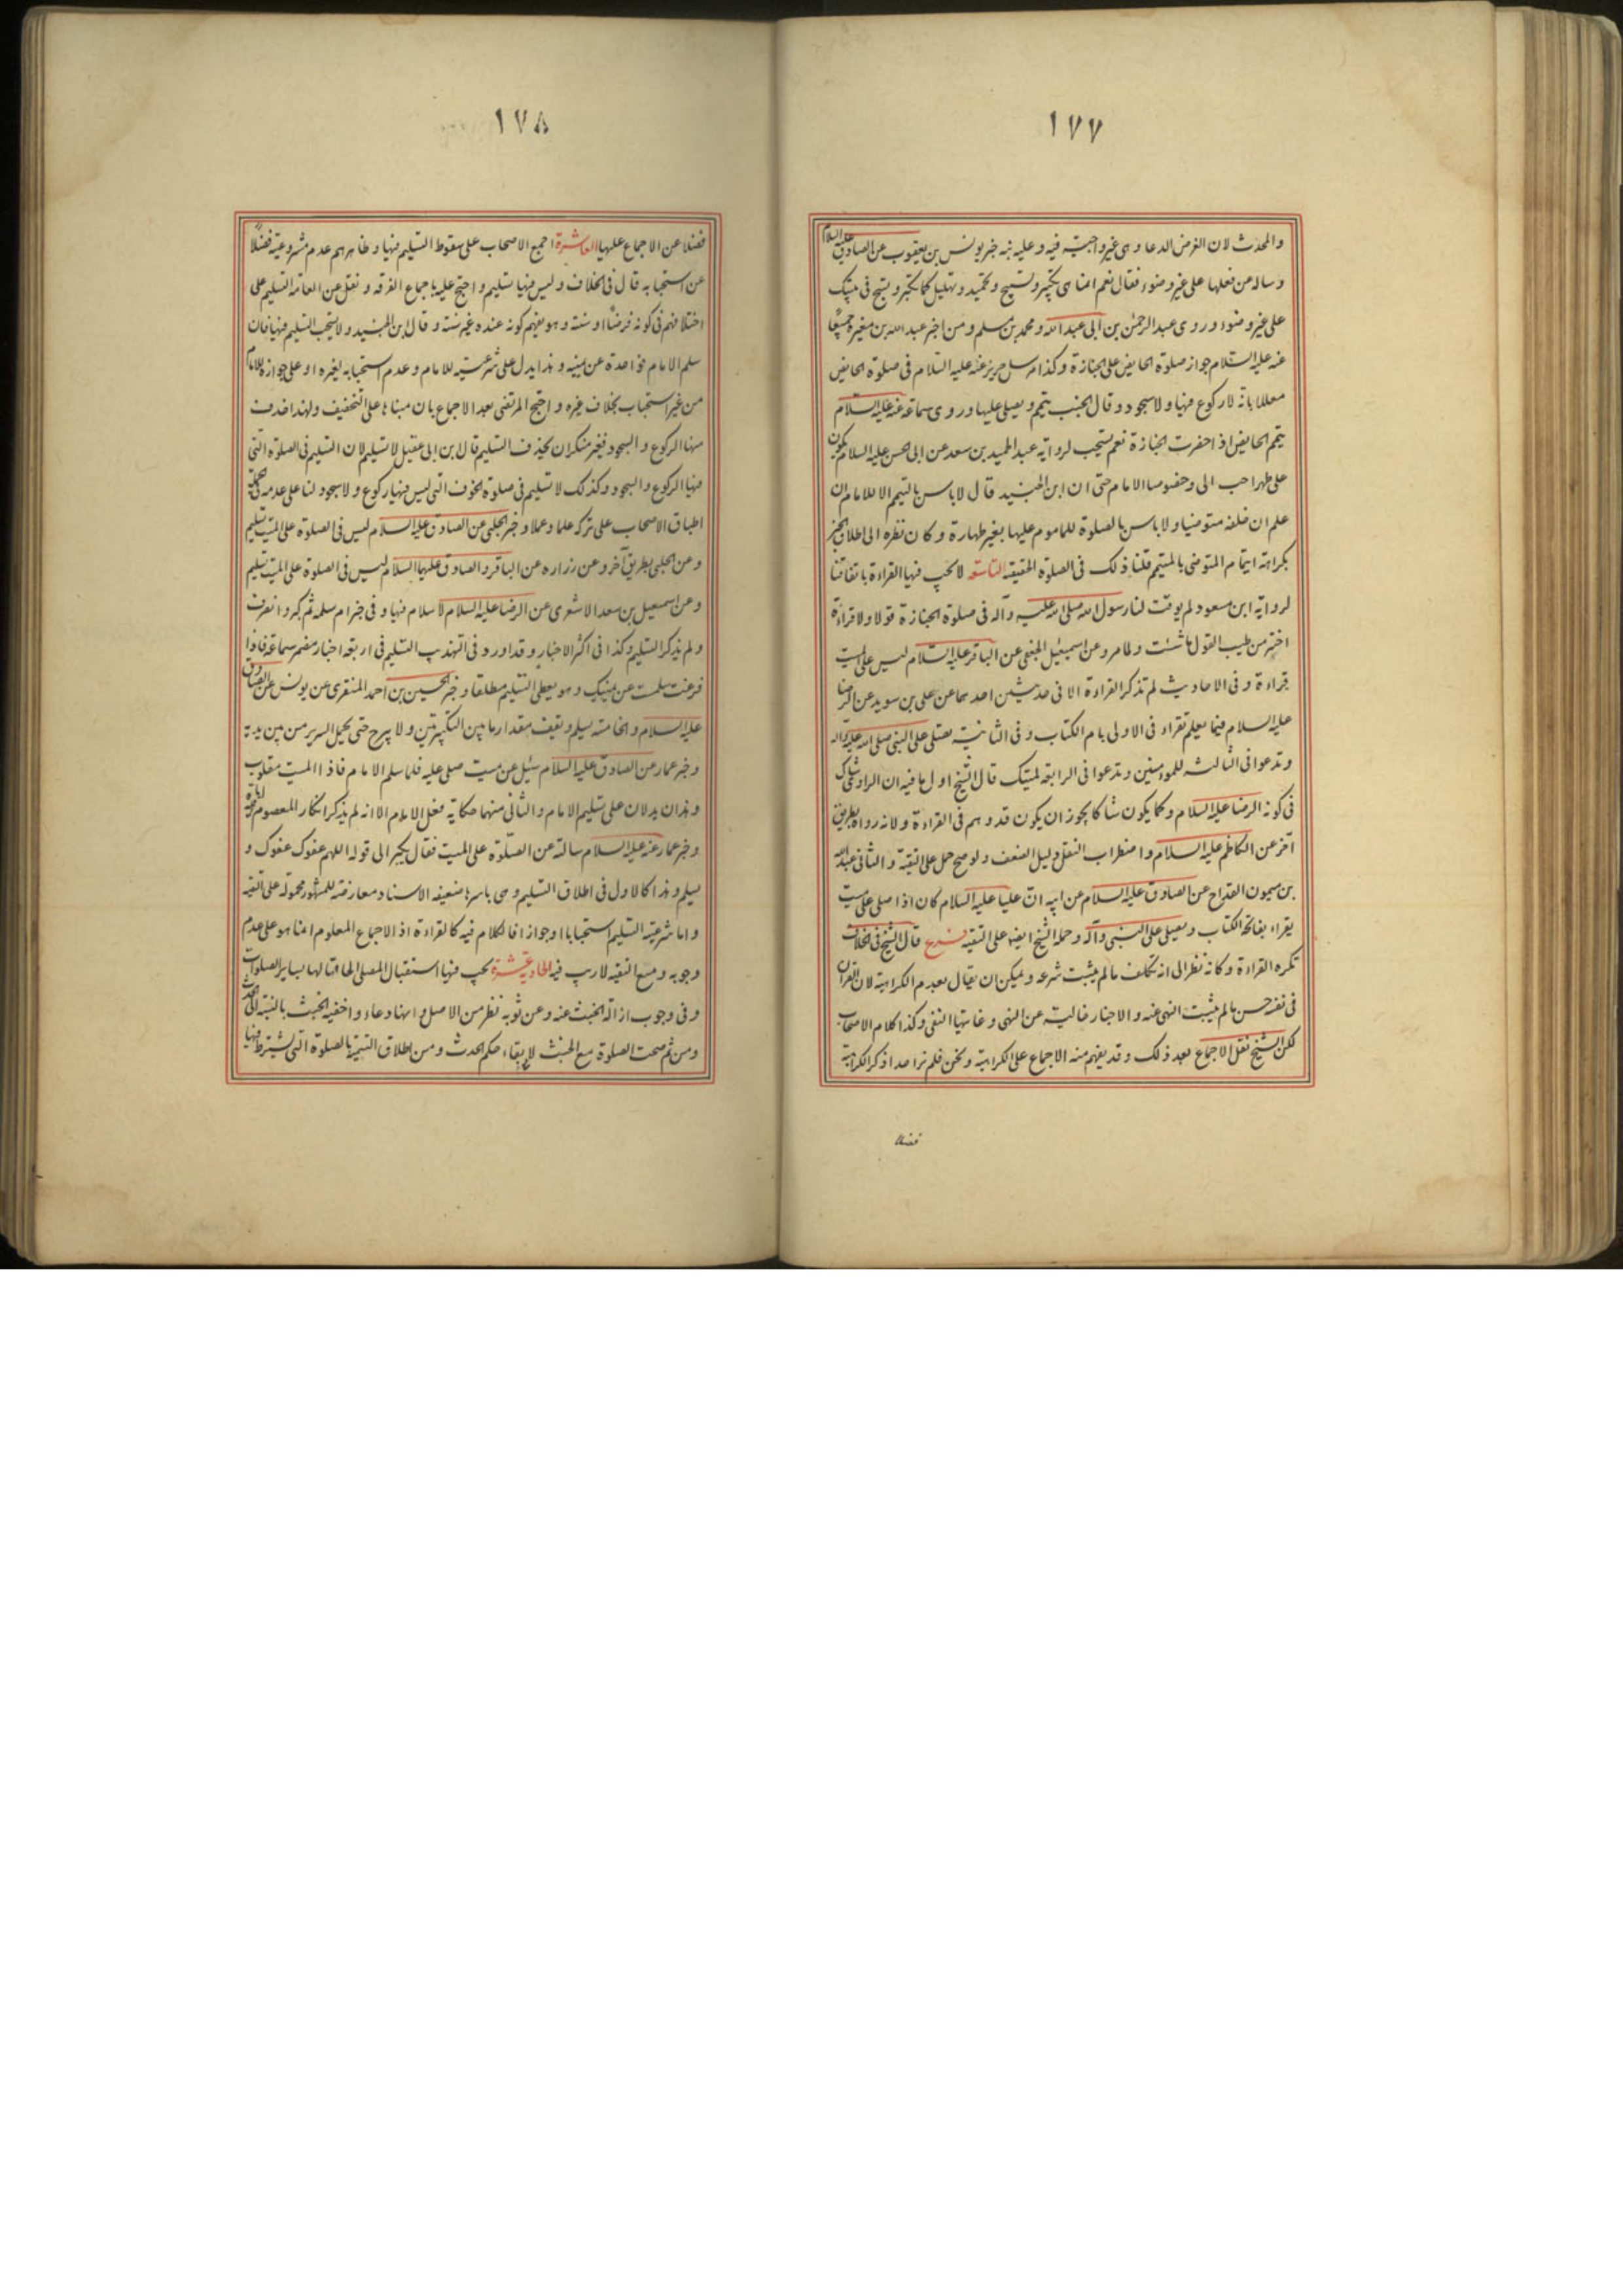 ١٧٧
والمحدث لان الغرض الدعا وهى غير واجبة فيه وعليه نبه خبر يونس بن يعقوب عن الصادق عليه السلام
وساله من فعلها على غير وضوء فقال نعم انما هى تكبير وتسبيح وتحميد وتهليل كما تكبر وتسبح فى بيتك
على غير وضوء وروى عبد الرحمن بن ابى عبد الله ومحمد بن مسلم ومن اخبر عبد الله بن مغيره جميعًا
عنه عليه السلام جواز صلوة الحايض على الجنازة وكذا مرسل حريز عنه عليه السلام فى صلوة الحايض
معللا بانه لا ركوع فيها ولا سجود وقال الجنب يتيمم ويصلى عليها وروى سماعة عنه عليه السلام
يتيمم الحايض اذ احضرت الجنازة نعم يستحب لرواية عبد الحميد بن سعد عن ابى الحسن عليه السلام يكون
على طهر احب الى وخصوصا الامام حتى ان ابن الجنيد قال لاباس بالتيمم الا للامام ان
علم ان خلفه متوضيا ولاباس بالصلوة للماموم عليها بغير طهارة وكان نظره الى اطلاق الخبر
بكراهة ايتمام المتوضى بالمتيمم قلنا ذلك فى الصلوة الحقيقه التاسعه لا يجب فيها القراءة باتفاقنا
لرواية ابن مسعود لم يوقت لنا رسول الله صلى الله عليه وآله فى صلوة الجنازة قولا ولا قراءة
اختر من طيب القول ما شئت ولما مر وعن اسمعيل الجعفى عن الباقر عليه السلام ليس على الميت
قراءة وفى الاحاديث لم تذكر القراءة الا فى حديثين احدهما عن على بن سويد عن الرضا
عليه السلام فيما يعلم تقراء فى الاولى بام الكتاب وفى الثانية يصلى على النبى صلى الله عليه وآله
وتدعوا فى الثالثه للمؤمنين وتدعوا فى الرابعه لميتك قال الشيخ اول ما فيه ان الراوى شاك
فى كونه الرضا عليه السلام وكما يكون شاكا يجوز ان يكون قد وهم فى القراءة ولانه رواه بطريق
آخر عن الكاظم عليه السلام واضطراب النقل دليل الضعف ولو صح حمل على التقية والثانى عبد الله
بن ميمون القداح عن الصادق عليه السلام عن ابيه ان عليا عليه السلام كان اذا صلى على ميت
يقراء بفاتحة الكتاب ويصلى على النبى وآله وحمله الشيخ ايضا على التقيه فرع قال الشيخ فى الخلاف
تكره القراءة وكانه نظر الى انه تكلف ما لم يثبت شرعه ويمكن ان يقال بعدم الكراهية لان القران
فى نفسه حسن ما لم يثبت النهى عنه والاخبار خالية عن النهى وغايتها النفى وكذا كلام الاصحاب
لكن الشيخ نقل الاجماع بعد ذلك وقد يفهم منه الاجماع على الكراهية ونحن فلم نر احدا ذكر الكراهية
فضلا
١٧٨
فضلا عن الاجماع عليها العاشرة اجمع الاصحاب على سقوط التسليم فيها وظاهرهم عدم مشروعيته فضلا
عن استحبابه قال فى الخلاف وليس فيها تسليم واحتج عليه باجماع الفرقه ونقل عن العامة التسليم على
اختلافهم فى كونه فرضًا او سنته وهو يفهم كونه عنده غير سنته وقال ابن الجنيد ولا يستحب التسليم فيها فان
سلم الامام فواحدة عن يمينه وهذا يدل على شرعيته للامام وعدم استحبابه لغيره او على جوازه للامام
من غير استحباب بخلاف غيره واحتج المرتضى بعد الاجماع بان مبناها على التخفيف ولهذا حذف
منها الركوع والسجود فغير منكر ان يحذف التسليم قال بن ابى عقيل لا تسليم لان التسليم فى الصلوة التى
فيها الركوع والسجود وكذلك لا تسليم فى صلوة الخوف التى ليس فيها ركوع ولا سجود لنا على عدمه
اطباق الاصحاب على تركه علما وعملا وخبر الحلبى عن الصادق عليه السلام ليس فى الصلوة على الميت تسليم
وعن الحلبى بطريق آخر وعن زراره عن الباقر والصادق عليهما السلام ليس فى الصلوة على الميت تسليم
وعن اسمعيل بن سعد الاشعرى عن الرضا عليه السلام لا سلام فيها وفى خبر ام سلمه ثم كبر وانصرف
ولم يذكر التسليم وكذا فى اكثر الاخبار وقد اورد فى التهذيب التسليم فى اربعه اخبار مضمر سماعة فاذا
فرغت سلمت عن يمينك وهو يعطى التسليم مطلقا وخبر الحسين بن احمد المنقرى عن يونس عن الصادق
عليه السلام والخامسة يسلم ويقف مقدار ما بين التكبيرتين ولا يبرح حتى يحمل السرير من بين يديه
وخبر عمار عن الصادق عليه السلام سئل عن ميت صلى عليه فلما سلم الامام فاذا الميت مقلوب
وهذان يدلان على تسليم الامام والثانى منهما حكاية فعل الامام الا انه لم يذكر انكار المعصوم
وخبر عمار عنه عليه السلام سالته عن الصلوة على الميت فقال يكبر الى قوله اللهم عفوك عفوك و
يسلم وهذا كالاول فى اطلاق التسليم وهى باسرها ضعيفه الاسناد ومعارضة للمشهور محمولة على التقيه
واما شرعية التسليم استحبابا او جوازا فالكلام فيه كالقراءة اذ الاجماع المعلوم انما هو على عدم
وجوبه ومع التقيه لاريب فيه الحادية عشرة يجب فيها استقبال المصلى الحاقا لها بساير الصلوات
وفى وجوب ازالة الخبث عنه وعن ثوبه نظر من الاصل وانها دعاء واخفيه الخبث بالنسبة الى الحدث
ومن ثم صحت الصلوة مع الخبث لا مع بقاء حكم الحدث ومن اطلاق التسمية بالصلوة التى يشترط فيها